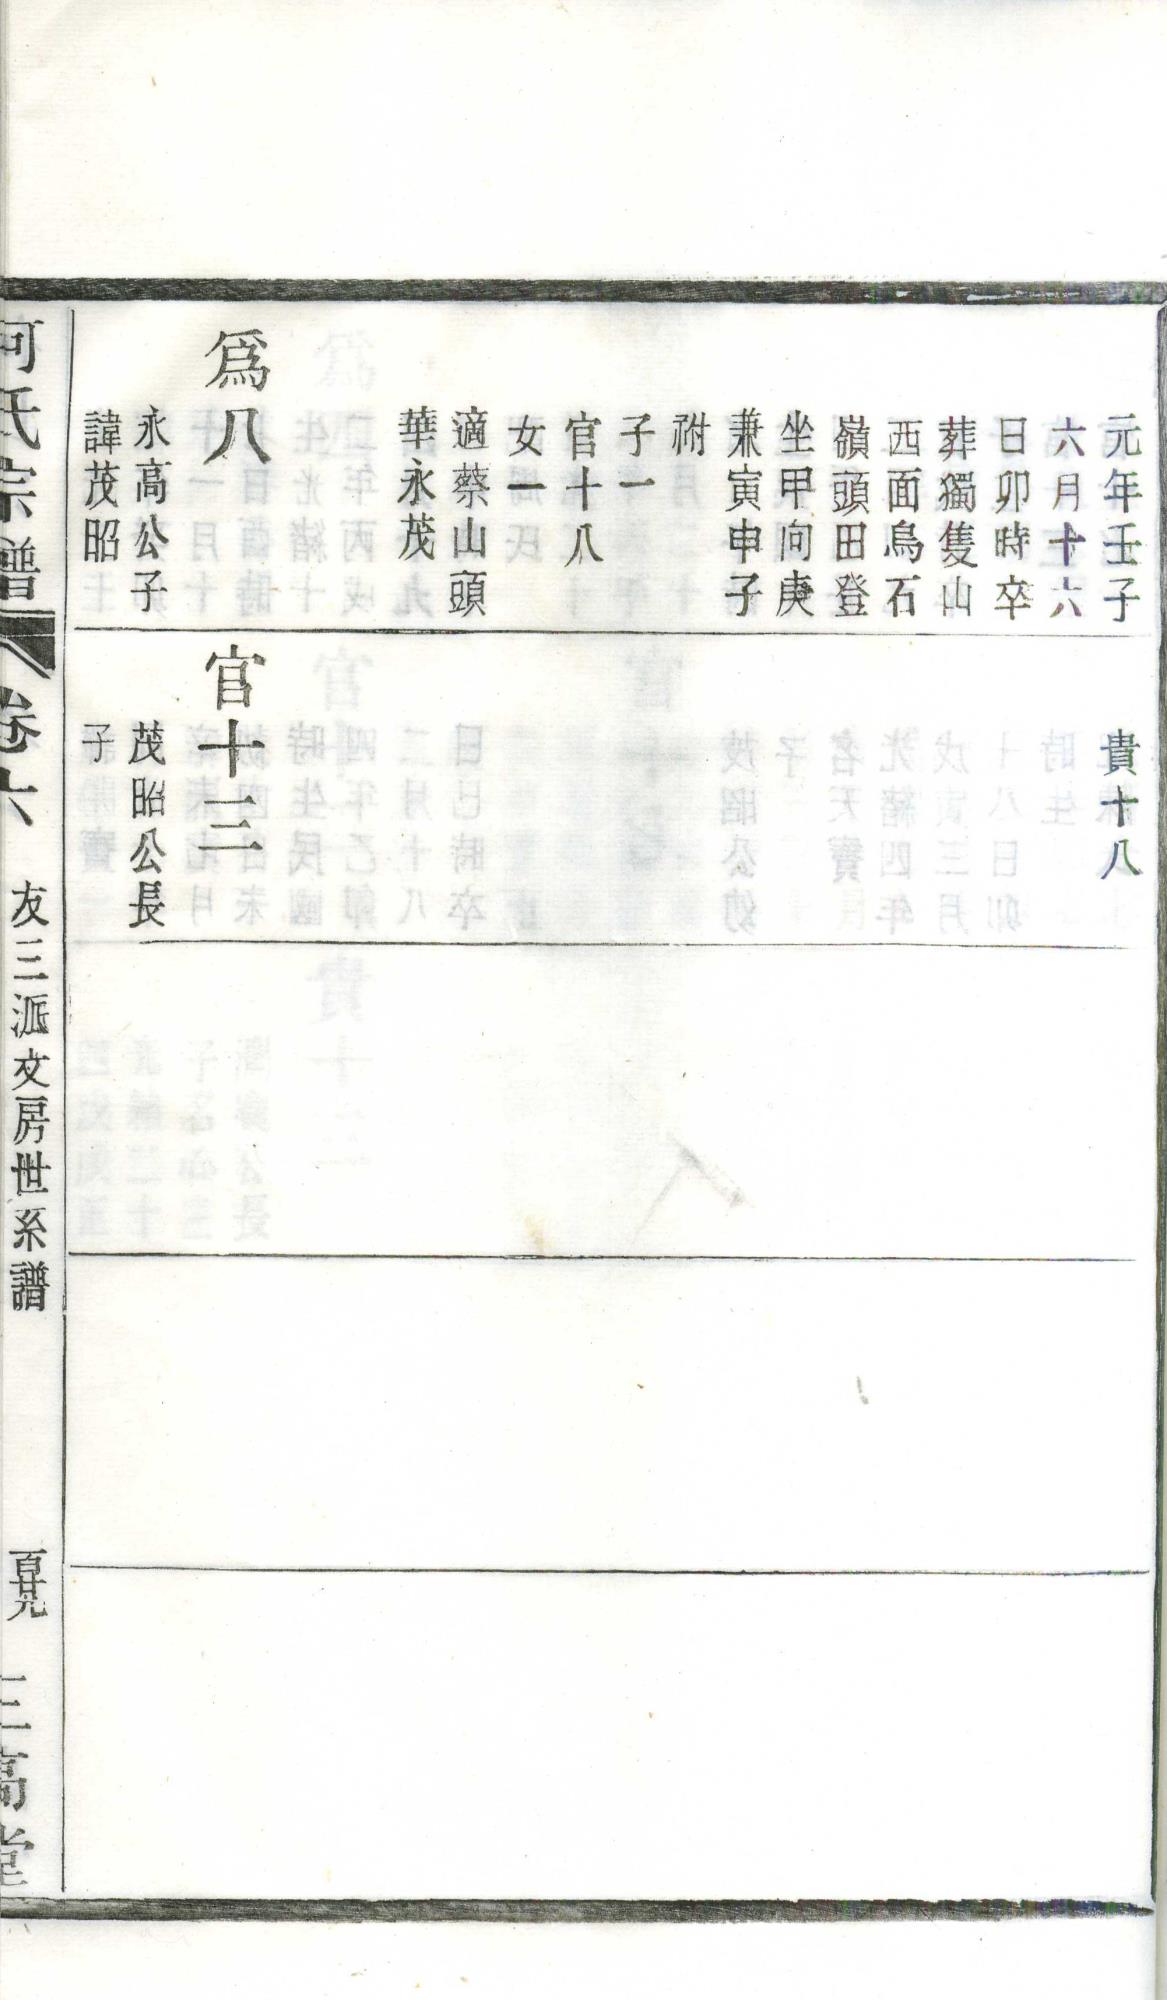 元年壬子
六月十六
日卯時卒
葬獨隻山
西面烏石
嶺頭田登
坐甲向庚
兼寅申子
祔
子一
官十八
女一
適蔡山頭
華永茂
爲八
永高公子
諱茂昭
貴十八
官十三
茂昭公長
子
何氏宗譜
卷六
友三派文房世系譜
三高堂